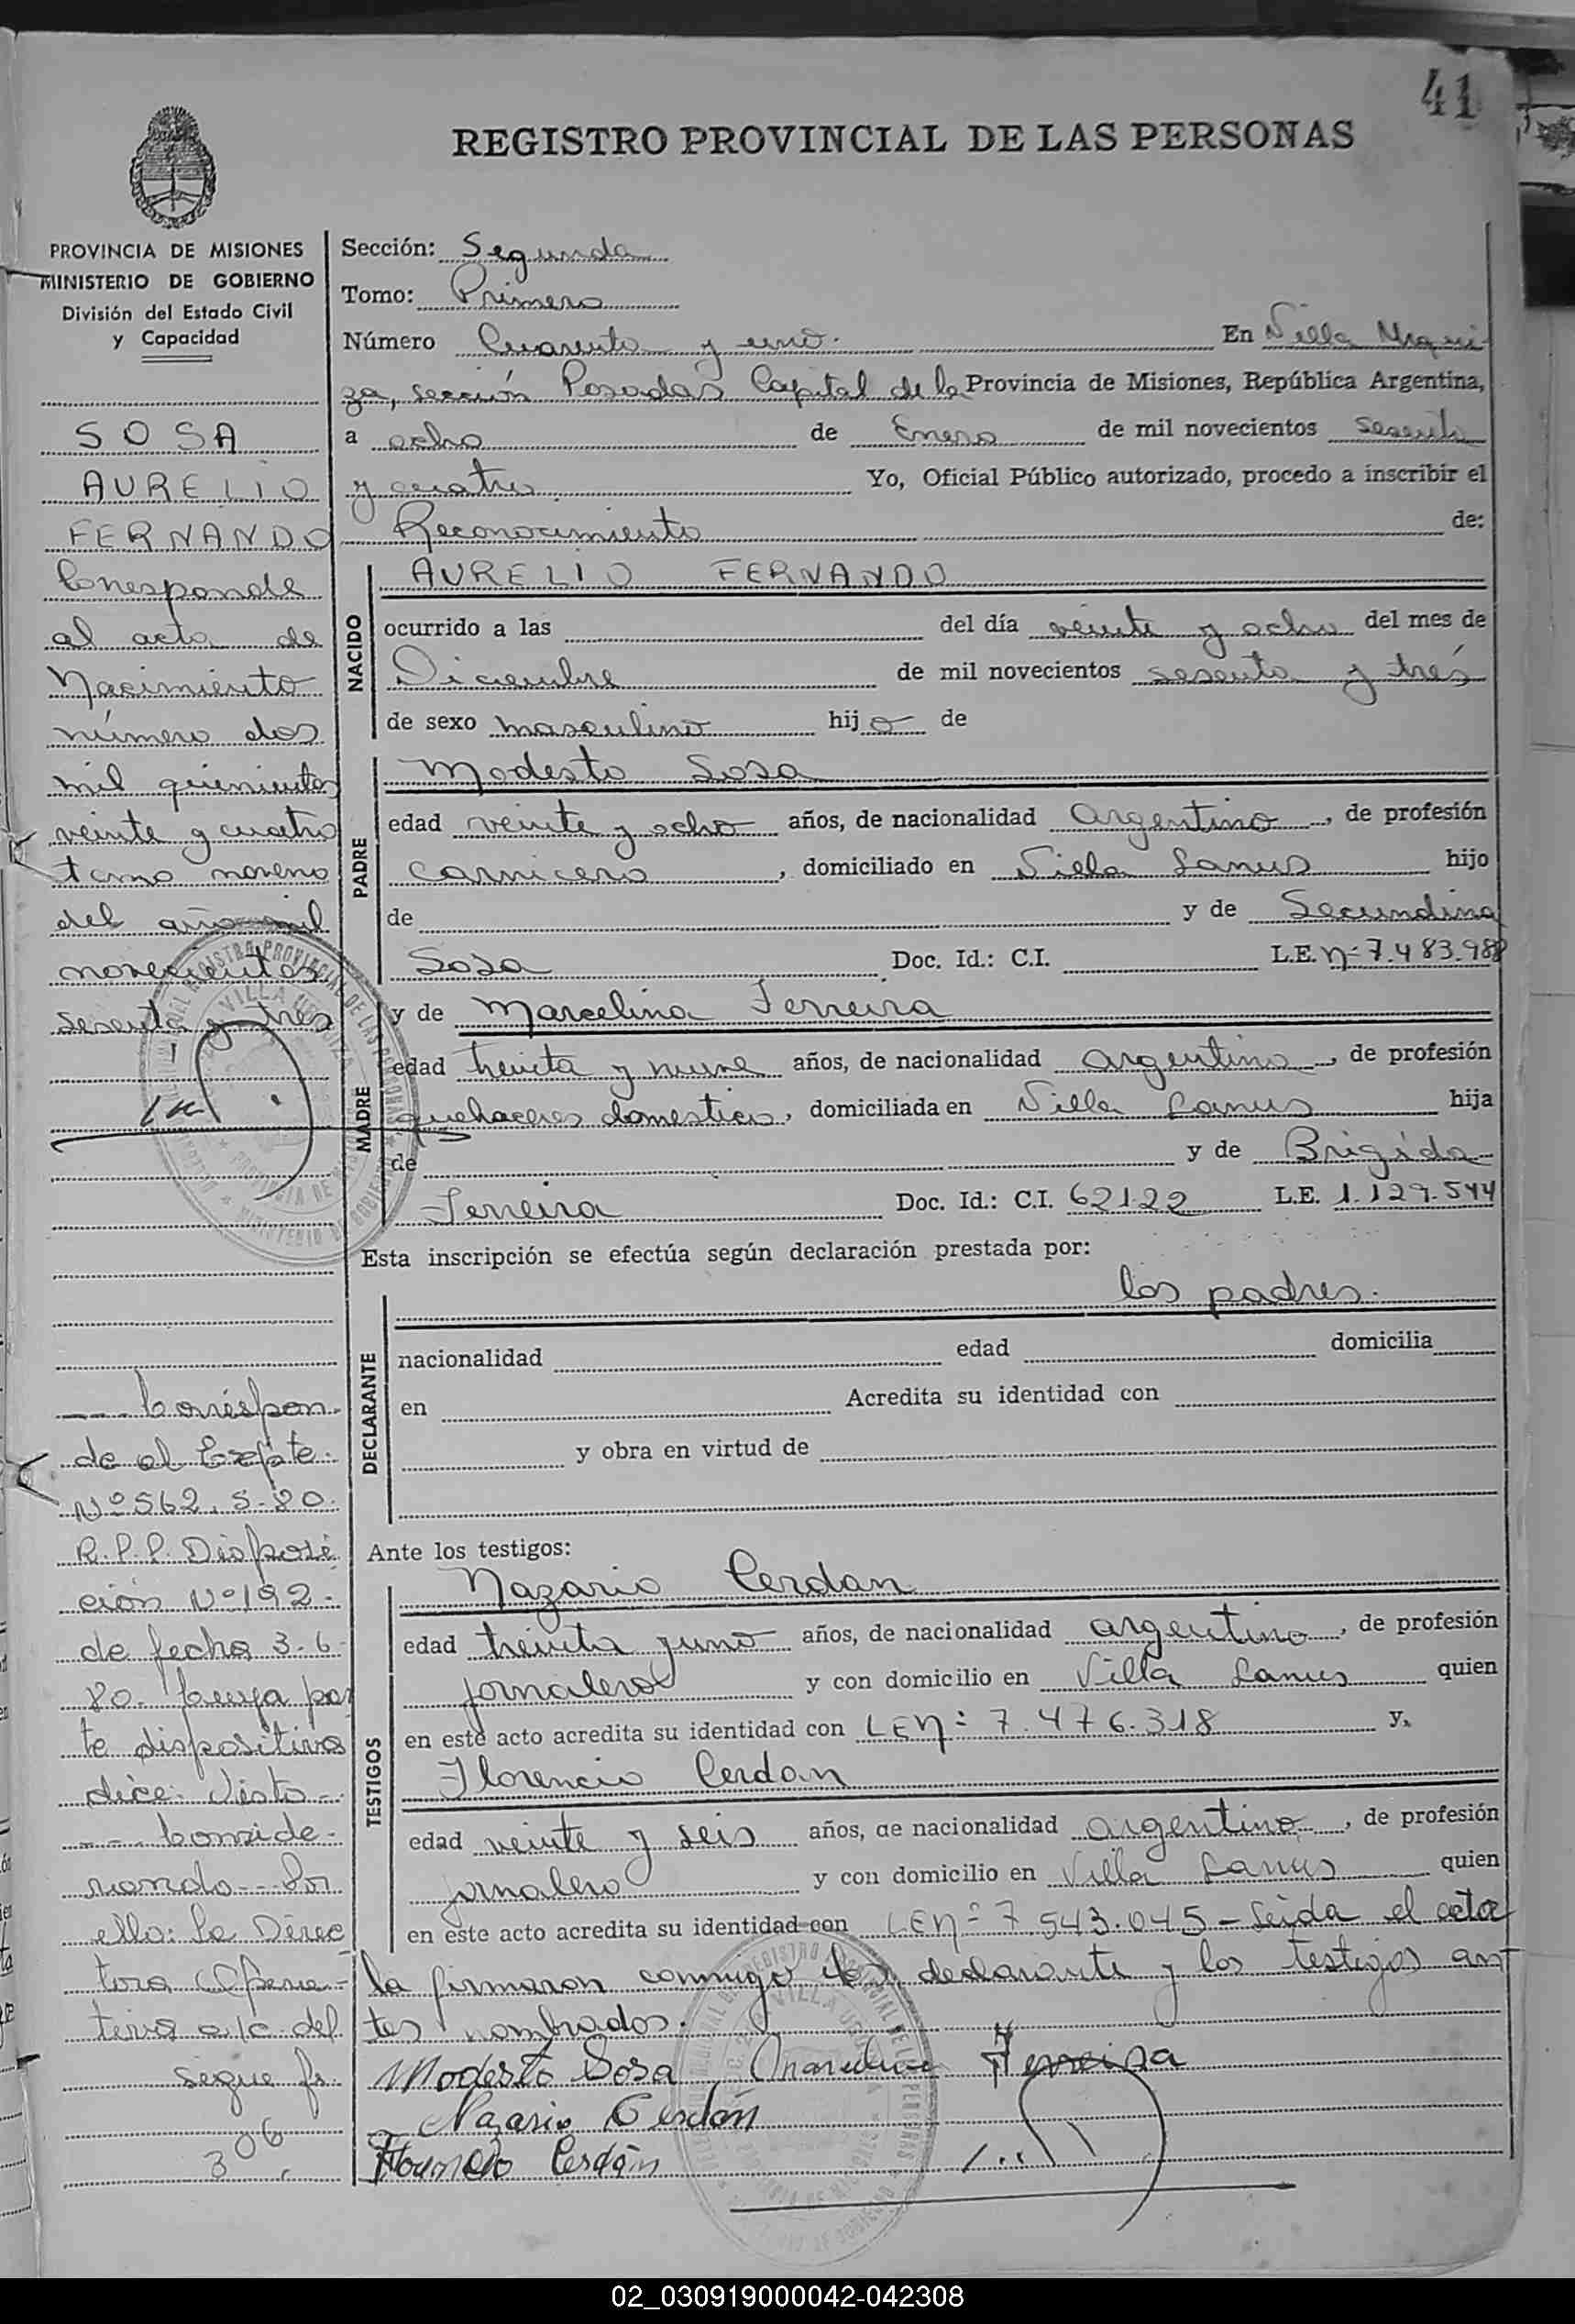 41
REGISTRO PROVINCIAL DE LAS PERSONAS
PROVINCIA DE MISIONES
MINISTERIO DE GOBIERNO
División del Estado Civil
y Capacidad
SOSA
AURELIO
FERNANDO
Corresponde
al acta de
Nacimiento
número dos
mil quinientos
veinte y cuatro
tomo noveno
del año mil
novecientos
sesenta y tres
Correspon-
de al Expte.
Nº 562.S-80.
R.P.P. Disposi
ción Nº 192-
de fecha 3-6-
80. Cuya par
te dispositiva
dice: Visto-
--- Conside-
rando--- Por
ello: La Direc
tora Opera-
tiva a/c del
sigue fs.
306.
Sección: Segunda
Tomo: Primero
Número Cuarenta y uno. En Villa Urqui
za, sección Posadas Capital de la Provincia de Misiones, República Argentina,
a ocho de Enero de mil novecientos sesenta
y cuatro Yo, Oficial Público autorizado, procedo a inscribir el
Reconocimiento de:
NACIDO
AURELIO FERNANDO
ocurrido a las del día veinte y ocho del mes de
Diciembre de mil novecientos sesenta y trés
de sexo masculino hijo de
PADRE
Modesto Sosa
edad veinte y ocho años, de nacionalidad Argentino, de profesión
carnicero, domiciliado en Villa Lanus hijo
de y de Secundina
Sosa Doc. Id.: C.I. L.E. nº 7.483.988
MADRE
y de Marcelina Ferreira
edad treinta y nueve años, de nacionalidad argentina, de profesión
quehaceres domesticos, domiciliada en Villa Lanus hija
de y de Brigida
Ferreira Doc. Id.: C.I. 62122 L.E. 1.129.544
Esta inscripción se efectúa según declaración prestada por:
DECLARANTE
los padres.
nacionalidad edad domicilia
en Acredita su identidad con
y obra en virtud de
Ante los testigos:
TESTIGOS
Nazario Cerdan
edad treinta y uno años, de nacionalidad argentino, de profesión
jornalero y con domicilio en Villa Lanus quien
en este acto acredita su identidad con LEnº 7.476.318 y,
Florencio Cerdan
edad veinte y seis años, de nacionalidad argentino, de profesión
jornalero y con domicilio en Villa Lanus quien
en este acto acredita su identidad con LEnº 7.543.045 - Leida el acta
la firmaron conmigo declarante y los testigos an
tes nombrados.
Modesto Sosa Ferreira
Nazario Cerdán
Cerdán
02_030919000042-042308